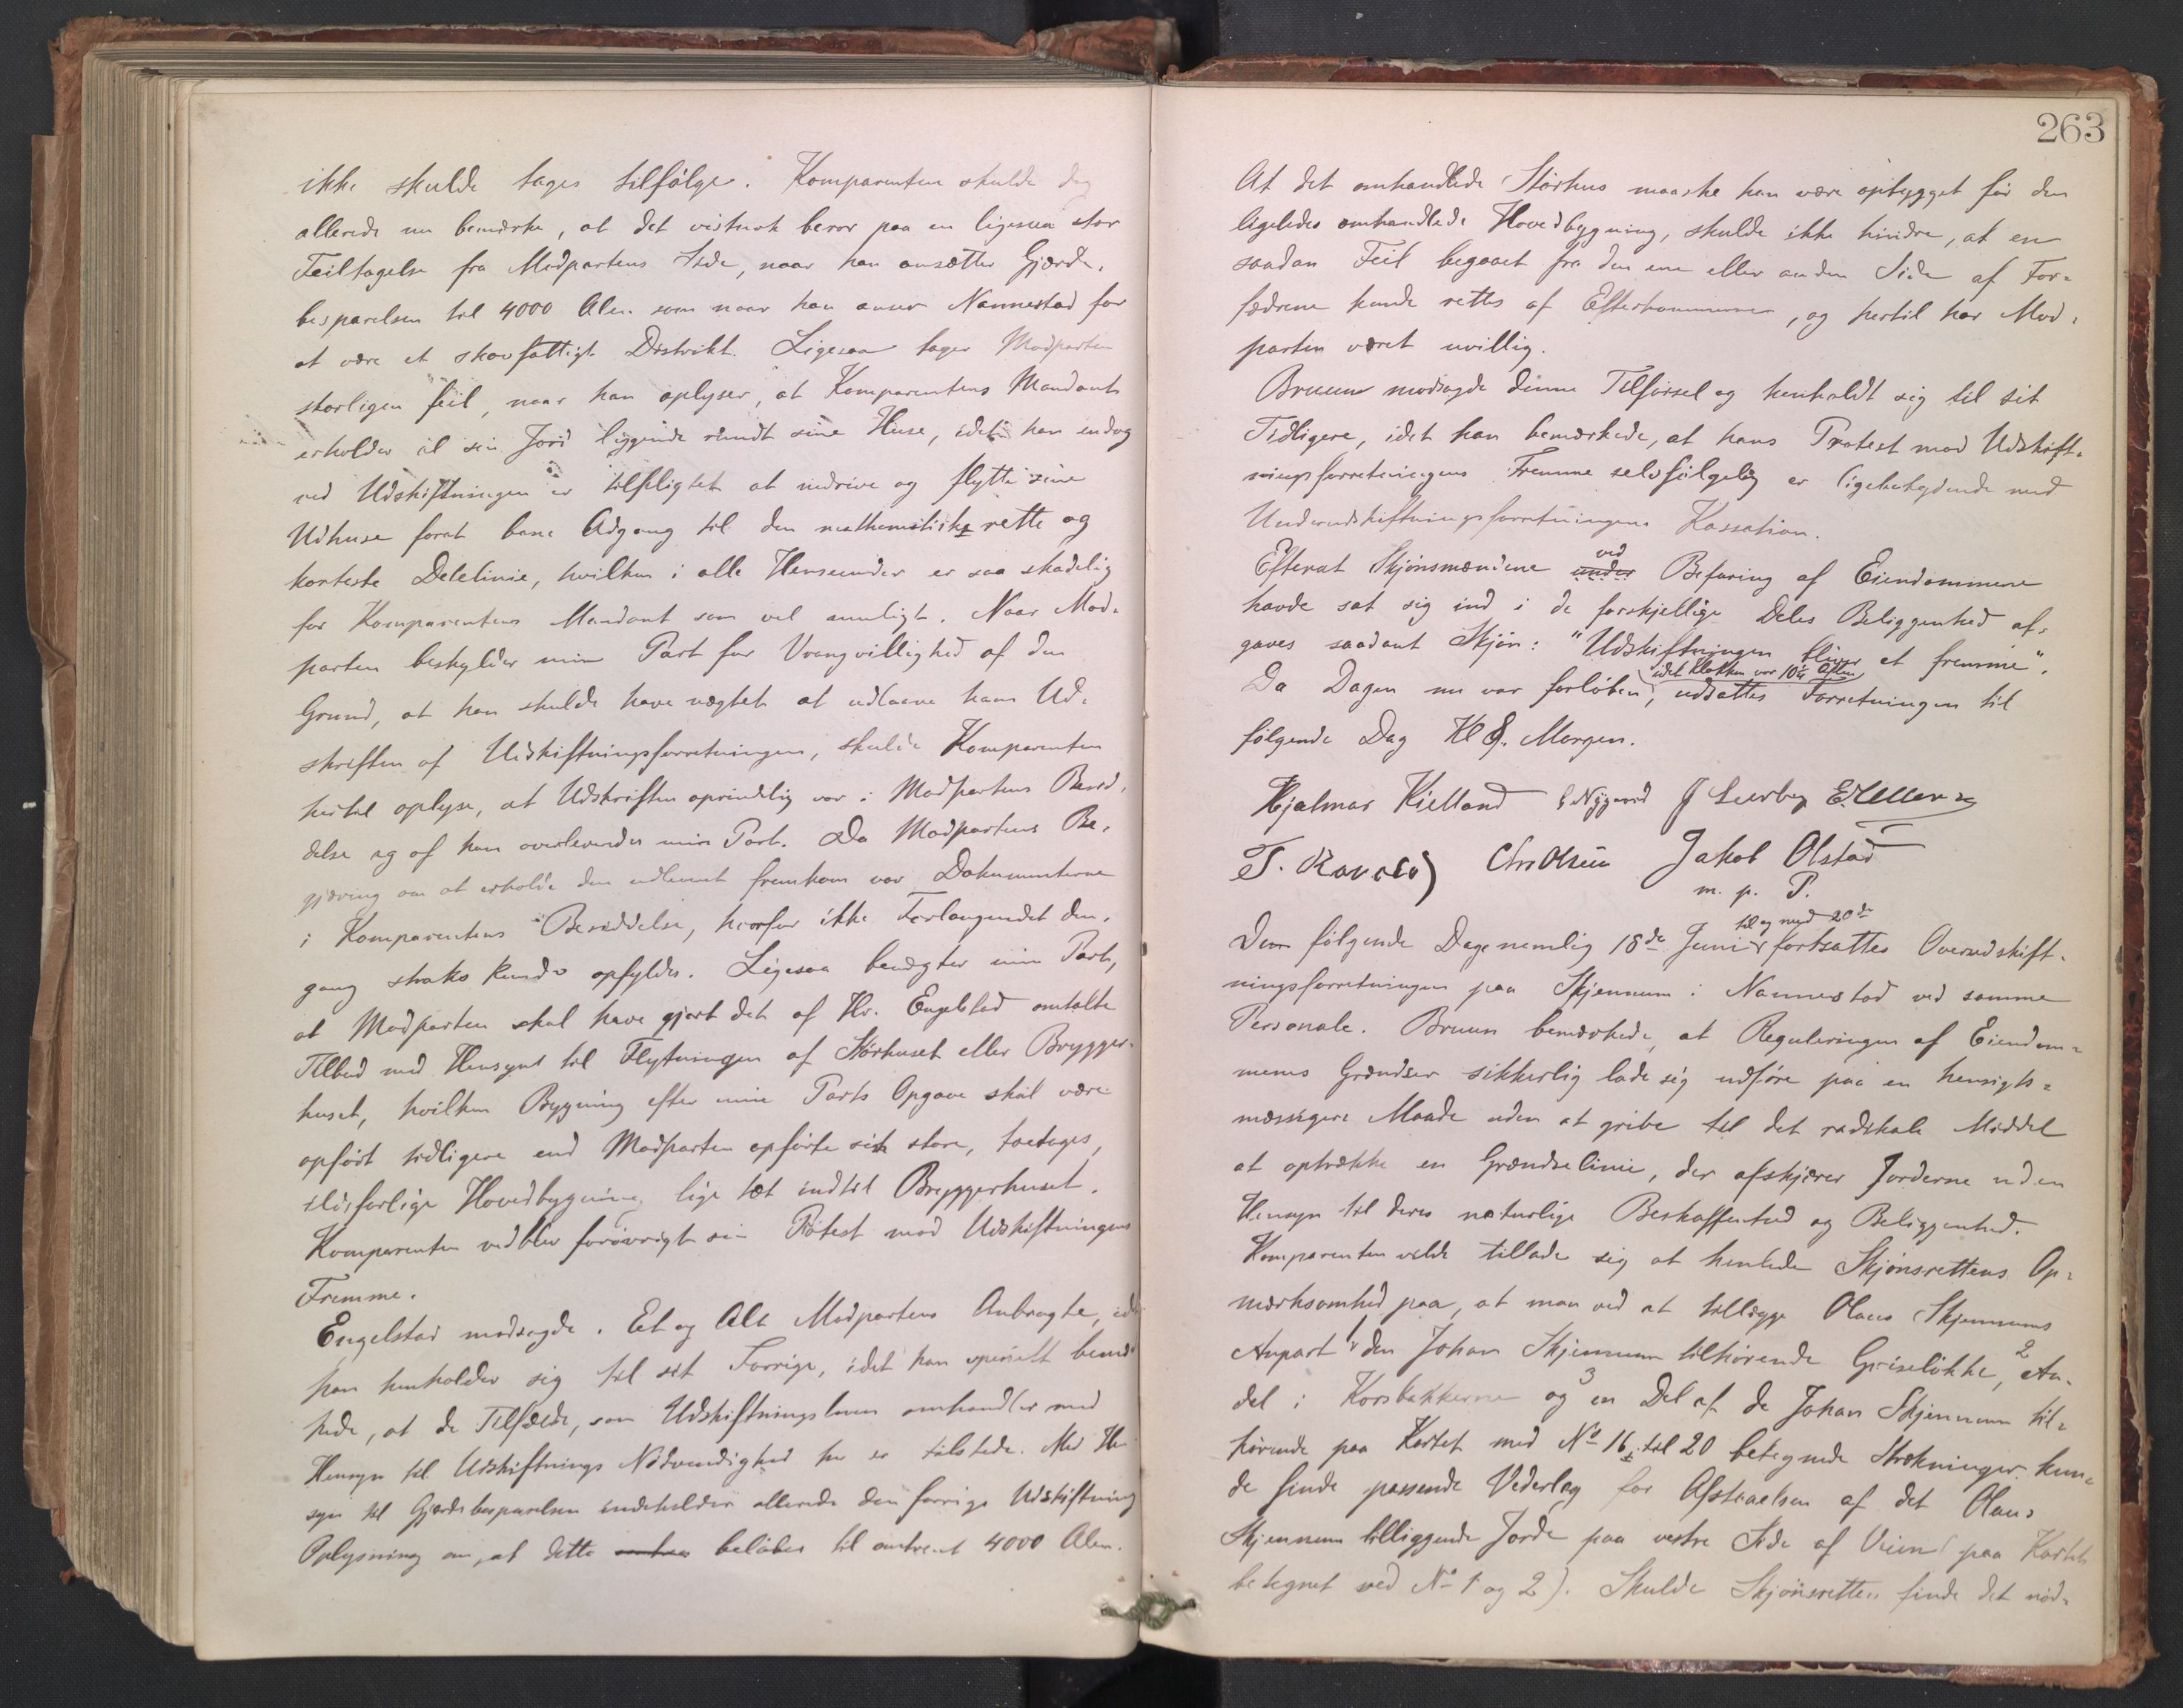 ikke skulde tages tilfølge. Komparenten skulde dog
allerede nu bemærke, at det vistnok beror paa en ligesaa stor
Feiltagelse fra Modpartens Side, naar han ansætter Gjærde-
besparelsen til 4000 Alen som naar han anser Nannestad for
at være et skovfattigt Distrikt. Ligesaa tager Modparten
storligen feil, naar han oplyser, at Komparentens Mandant
erholder al sin Jord liggende rundt sine Huse, idet han endog
ved Udskiftningen er tilpligtet at nedrive og flytte sine
Udhuse forat bane Adgang til den mathematiske rette og
korteste Delelinie, hvilken i alle Henseender er saa skadelig
for Komparentens Mandant som vel muligt. Naar Mod-
parten beskylder min Part for Vrangvillighed af den
Grund, at han skulde have nægtet at udlaane ham Ud-
skriften af Udskiftningsforretningen, skulde Komparenten
hertil oplyse, at Udskriften oprindelig var i Modpartens Besid-
delse og af ham overleveredes min Part. Da Modpartens Be-
gjæring om at erholde den udlaant fremkom var Dokumenterne
i Komparentens Besiddelse, hvorfor ikke Forlangendet den-
gang straks kunde opfyldes. Ligesaa benægter min Part,
at Modparten skal have gjort det af Hr. Engelstad omtalte
Tilbud med Hensyn til Flytningen af Størhuset eller Brygger-
huset, hvilken Bygning efter min Parts Opgave skal være
opført tidligere end Modparten opførte sin store, toetages,
ildsfarlige Hovedbygning lige tæt indtil Bryggerhuset.
Komparenten vedblev forøvrigt sin Protest mod Udskiftningens
Fremme.
Engelstad modsagde. Et og Alt Modpartens Anbragte, idet
han henholder sig til sit Forrige, idet han specielt bemær
kede, at de Tilfælde, som Udskiftningsloven omhandler med
Hensyn til Udskiftnings Nødvendighed her er tilstede. Med Hen-
syn til Gjærdebesparelsen indeholder allerede den forrige Udskiftning
Oplysning om, at dette beløber til omtrent 4000 Alen.
263
At det omhandlede Størhus maaske kan være opbygget før den
ligeledes omhandlede Hovedbygning, skulde ikke hindre, at en
saadan Feil begaaet fra den ene eller anden Side af For-
fædrene kunde rettes af Efterkommerne, og hertil har Mod-
parten været uvillig.
Bruun modsagde denne Tilførsel og henholdt sig til sit
Tidligere, idet han bemærkede, at hans Protest mod Udskift-
ningsforretningens Fremme selvfølgelig er ligebetydende med
Underudskiftningsforretningens Kassation.
ved
Efterat Skjønsmændene under Befaring af Eiendommene
havde sat sig ind i de forskjellige Deles Beliggenhed af-
gaves saadant Skjøn: "Udskiftningen bliver at fremme".
idet Klokken var 10¼ Aften
Da Dagen nu var forløben, udsattes Forretningen til
følgende Dag Kl 8. Morgen.
Hjalmar Kielland Nygaard
Chr Olsen Jakob Olstad
m. p. P.
til og med 20de
Den følgende Dage nemlig 18de Juni fortsattes Overudskift-
ningsforretningen paa Skjennum i Nannestad ved samme
Personale. Bruun bemærkede, at Reguleringen af Eiendom-
mens Grændser sikkerlig lade sig udføre paa en hensigts-
mæssigere Maade uden at gribe til det radikale Middel
at optrække en Grændselinie, der afskjærer Jorderne uden
Hensyn til deres naturlige Beskaffenhed og Beliggenhed.
Komparenten vilde tillade sig at henlede Skjønsrettens Op-
mærksomhed paa, at man ved at tillægge Olaus Skjennums
Anpart 1 den Johan Skjennum tilhørende Griseløkke, 2 An-
del i Korsbakkerne og 3 en Del af de Johan Skjennum til-
hørende paa Kartet med No 16 til 20 betegnede Strækninger kun-
de finde passende Vederlag for Afstaaelsen af det Olaus
Skjennum tilliggende Jorde paa vestre Side af Veien (paa Kartet
betegnet ved No 1 og 2). Skulde Skjønsretten finde det nød-